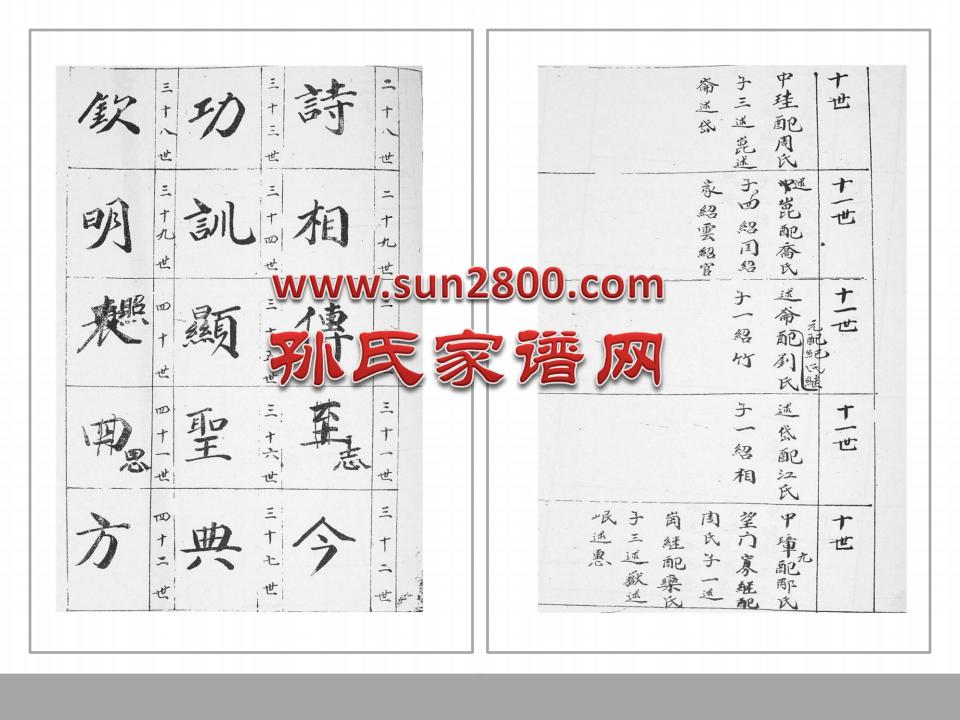 二十八世
詩
二十九世
相
傳
三十一世
至志
三十二世
今
三十三世
功
三十四世
訓
三十五世
顯
三十六世
聖
三十七世
典
三十八世
欽
三十九世
明
四十世
照
四十一世
思
四十二世
方
十世
中珪配周氏
子三述崑述
崙述岱
十一世
述崑配喬氏
子四紹閏紹
家紹雲紹官
十一世
元配紀氏繼
述崙配劉氏
子一紹竹
十一世
述岱配江氏
子一紹相
十世
中璋元配邴氏
望门寡継配
周氏子一述
崗継配欒氏
子三述嶽述
岷述惠
www.sun2800.com
孙氏家谱网